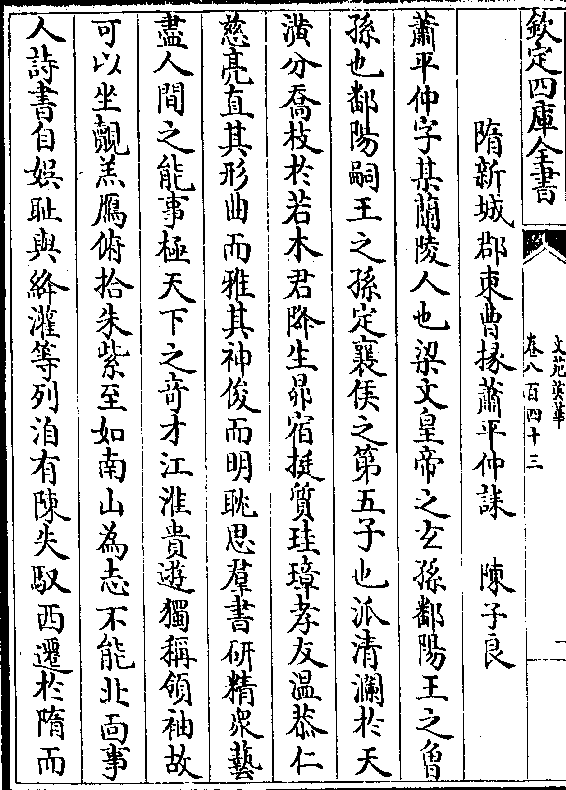 欽定四庫全書
文苑英華
卷八百四十三
一
隋新城郡東曹掾蕭平仲誄　陳子良
蕭平仲字某蘭陵人也梁文皇帝之玄孫鄱陽王之曾
孫也鄱陽嗣王之孫定襄侯之第五子也派清瀾於天
潢分喬枝於若木君降生昴宿挺質珪璋孝友溫恭仁
慈亮直其形曲而雅其神俊而明耽思羣書研精衆藝
盡人間之能事極天下之奇才江淮貴遊獨稱領袖故
可以坐覿羔鴈俯拾朱紫至如南山為志不能北面事
人詩書自娛耻與絳灌等列洎有陳失馭西遷於隋而